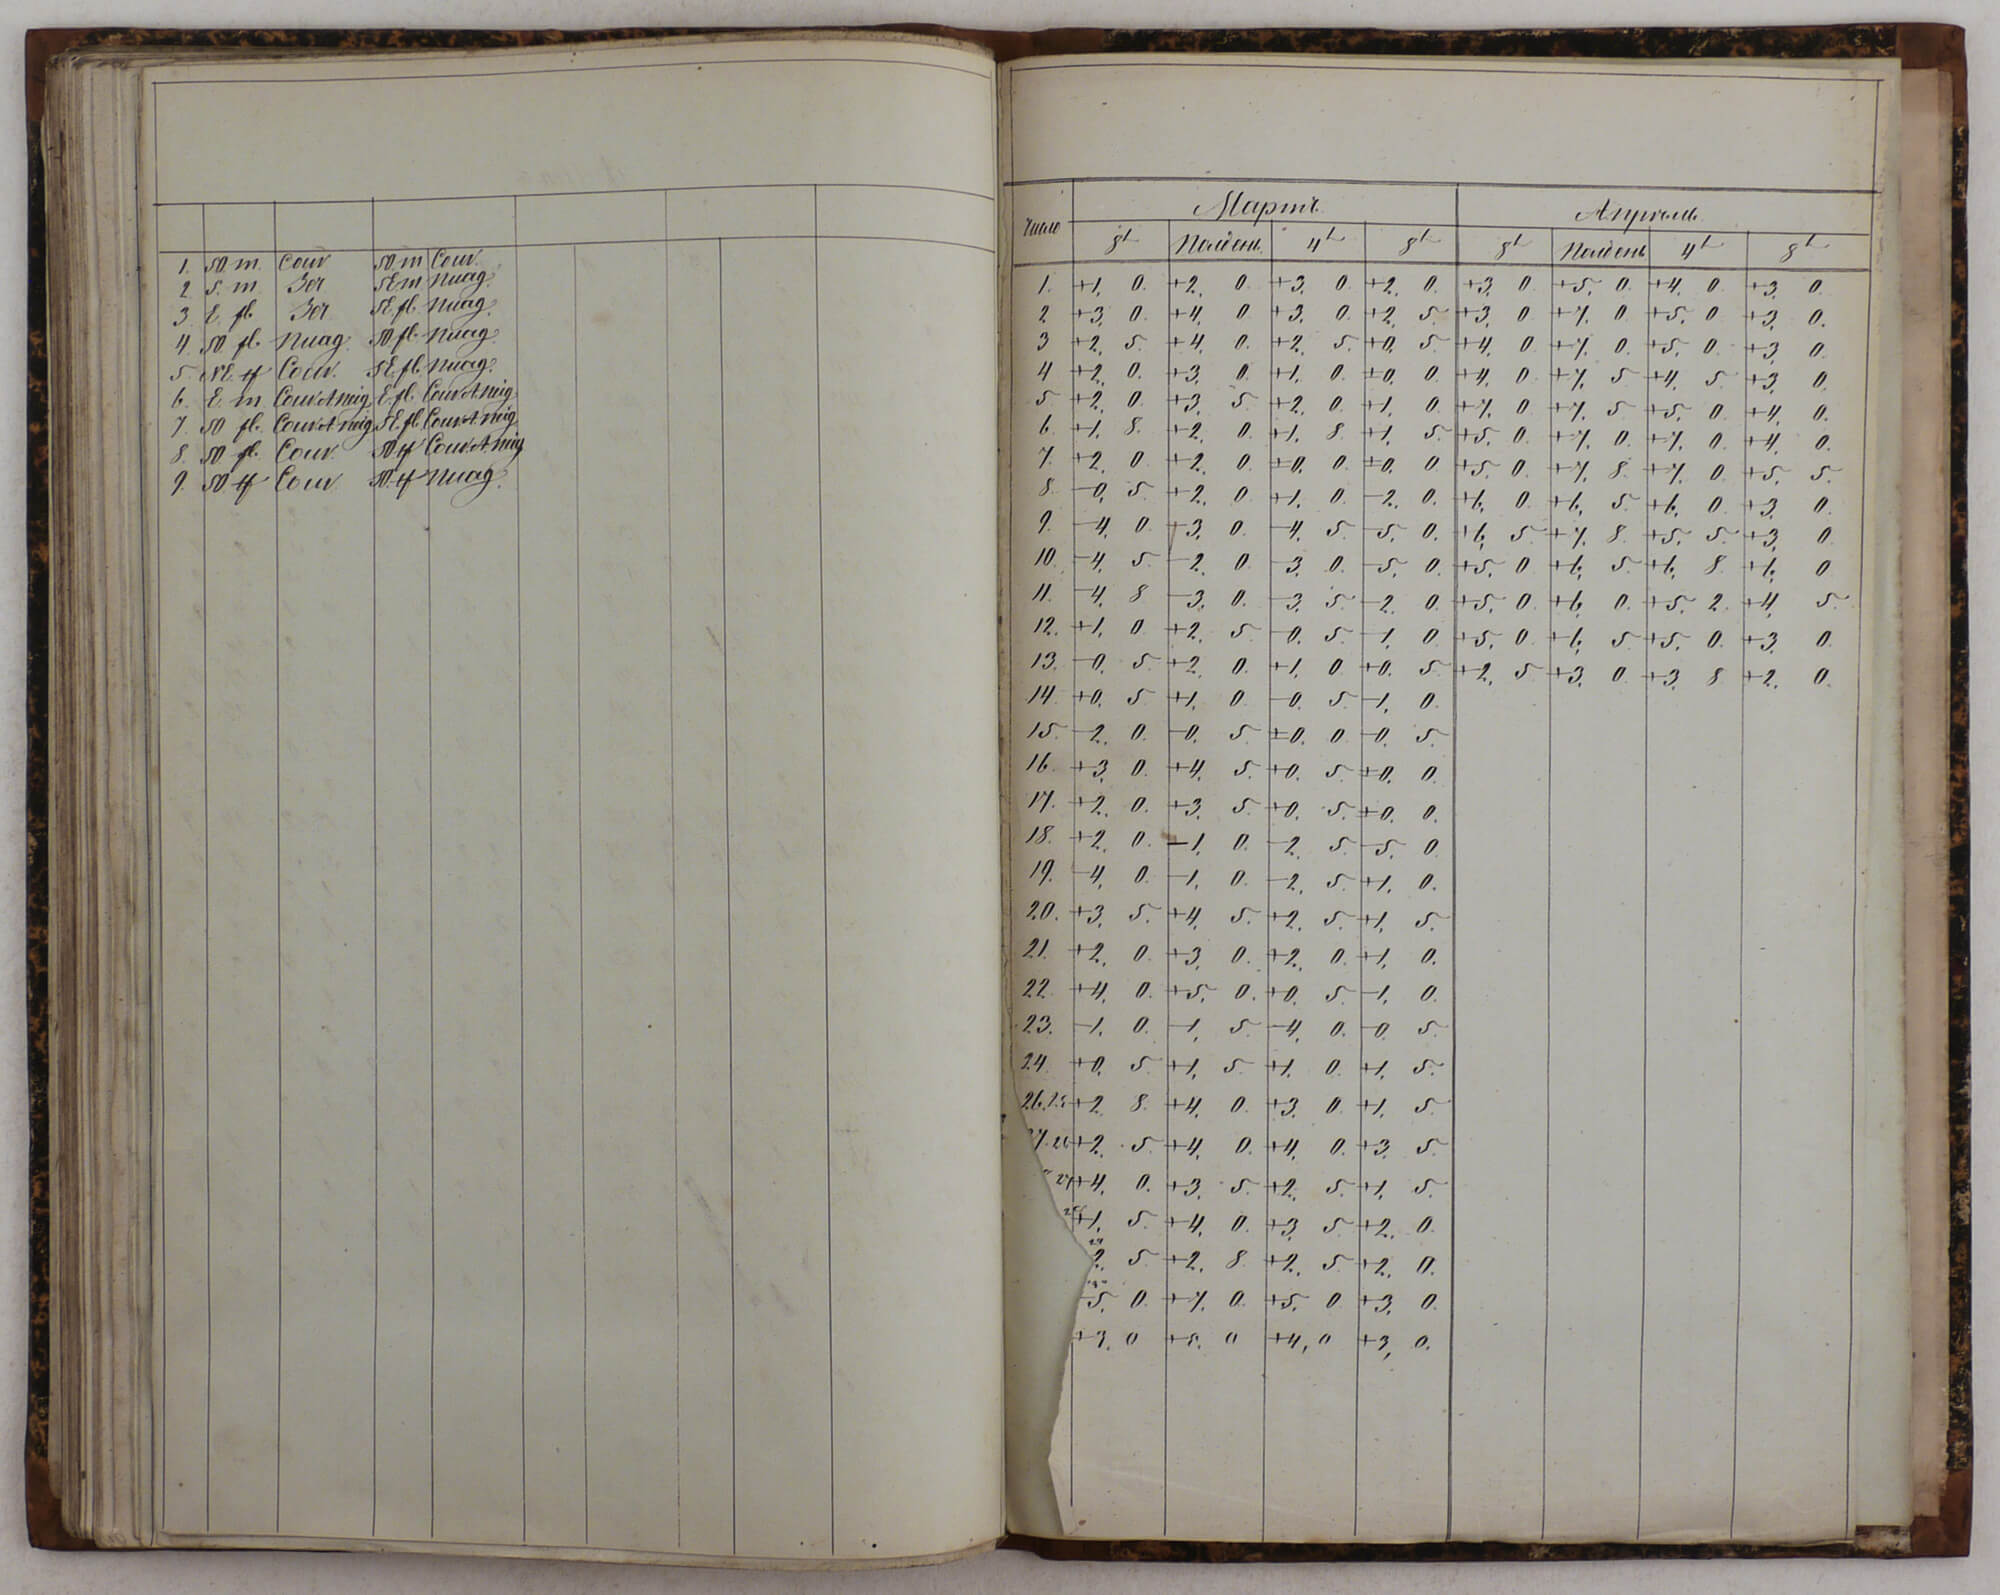 1. SO. m. Couv SO. m Couv.
2 S. m. Ser SE m Nuag.
3 E. fb Ser SE. fb. Nuag.
4. SO fb. Nuag. SO fb. Nuag.
5. NE. ff Couv. SE. fb. Nuag.
6. E. m Couv et neig E. fb. Couv et neig
7. SO fb. Couv et neig SE. fb Couv et neig
8. SO fb. Couv. SO ff Couv et neig
9. SO ff Couv SO. ff Nuag.
Число Мартъ. Апрѣль.
8h Полдень. 4h 8h 8h Полдень 4h 8h
1. +1, 0. +2, 0. +3, 0. +2, 0. +3, 0 +5, 0. +4, 0 +3, 0.
2 +3, 0. +4, 0 +3, 0. +2, 5. +3, 0 +7, 0 +5, 0 +3, 0.
3 +2, 5. +4, 0. +2, 5. +0, 5. +4, 0 +7, 0. +5, 0. +3, 0
4 +2, 0. +3, 0. +1, 0. ±0, 0 +4, 0 +7, 5 +4, 5. +3, 0.
5 +2, 0. +3, 5. +2, 0. +1, 0 +7, 0 +7, 5 +5, 0 +4, 0.
6. +1, 8. +2, 0. +1, 8. +1, 5. +5, 0. +7, 0. +7, 0. +4, 0.
7. +2, 0. +2, 0 ±0, 0. ±0, 0 +5, 0. +7, 8. +7, 0 +5, 5.
8. -0, 5. +2, 0 +1, 0. -2, 0. +6, 0 +6, 5. +6, 0 +3, 0.
9. -4, 0. +3, 0. -4, 5 -5, 0. +6, 5. +7, 8. +5, 5. +3, 0.
10. -4, 5. -2, 0. -3, 0. -5, 0. +5, 0 +6, 5. +6, 8. +6, 0
11. -4, 8 -3, 0. -3, 5. -2, 0. +5, 0 +6, 0. +5, 2. +4, 5.
12. +1, 0 +2, 5. -0, 5. -1, 0 +5, 0 +6, 5 +5, 0. +3, 0.
13. -0, 5. +2, 0. +1, 0 +0, 5. +2, 5 +3, 0. +3, 8 +2, 0.
14. +0, 5 +1, 0. -0, 5. -1, 0.
15. -2, 0. -0, 5. ±0, 0 -0, 5.
16 +3, 0. +4, 5. +0, 5. ±0, 0.
17. +2, 0. +3, 5. +0, 5. ±0, 0.
18. +2, 0. -1, 0. -2, 5. -5, 0
19. -4, 0. -1, 0. -2, 5. +1, 0.
20. +3, 5. +4, 5. +2, 5. +1, 5.
21. +2, 0. +3, 0. +2, 0. +1, 0.
22 +4, 0. +5, 0. +0, 5. -1, 0.
23. -1, 0. -1, 5. -4, 0. -0 5.
24 +0, 5. +1, 5. +1, 0. +1, 5.
26. 25 +2 8. +4, 0. +3, 0. +1, 5.
7. 26 +2, 5. +4, 0. +4, 0. +3, 5.
27 +4, 0. +3, 5. +2, 5. +1, 5.
+1, 5. +4, 0. +3, 5. +2, 0.
2, 5. +2, 8. +2, 5. +2, 0.
5, 0. +7, 0. +5, 0 +3, 0.
+3, 0 0 +4, 0 +3, 0.